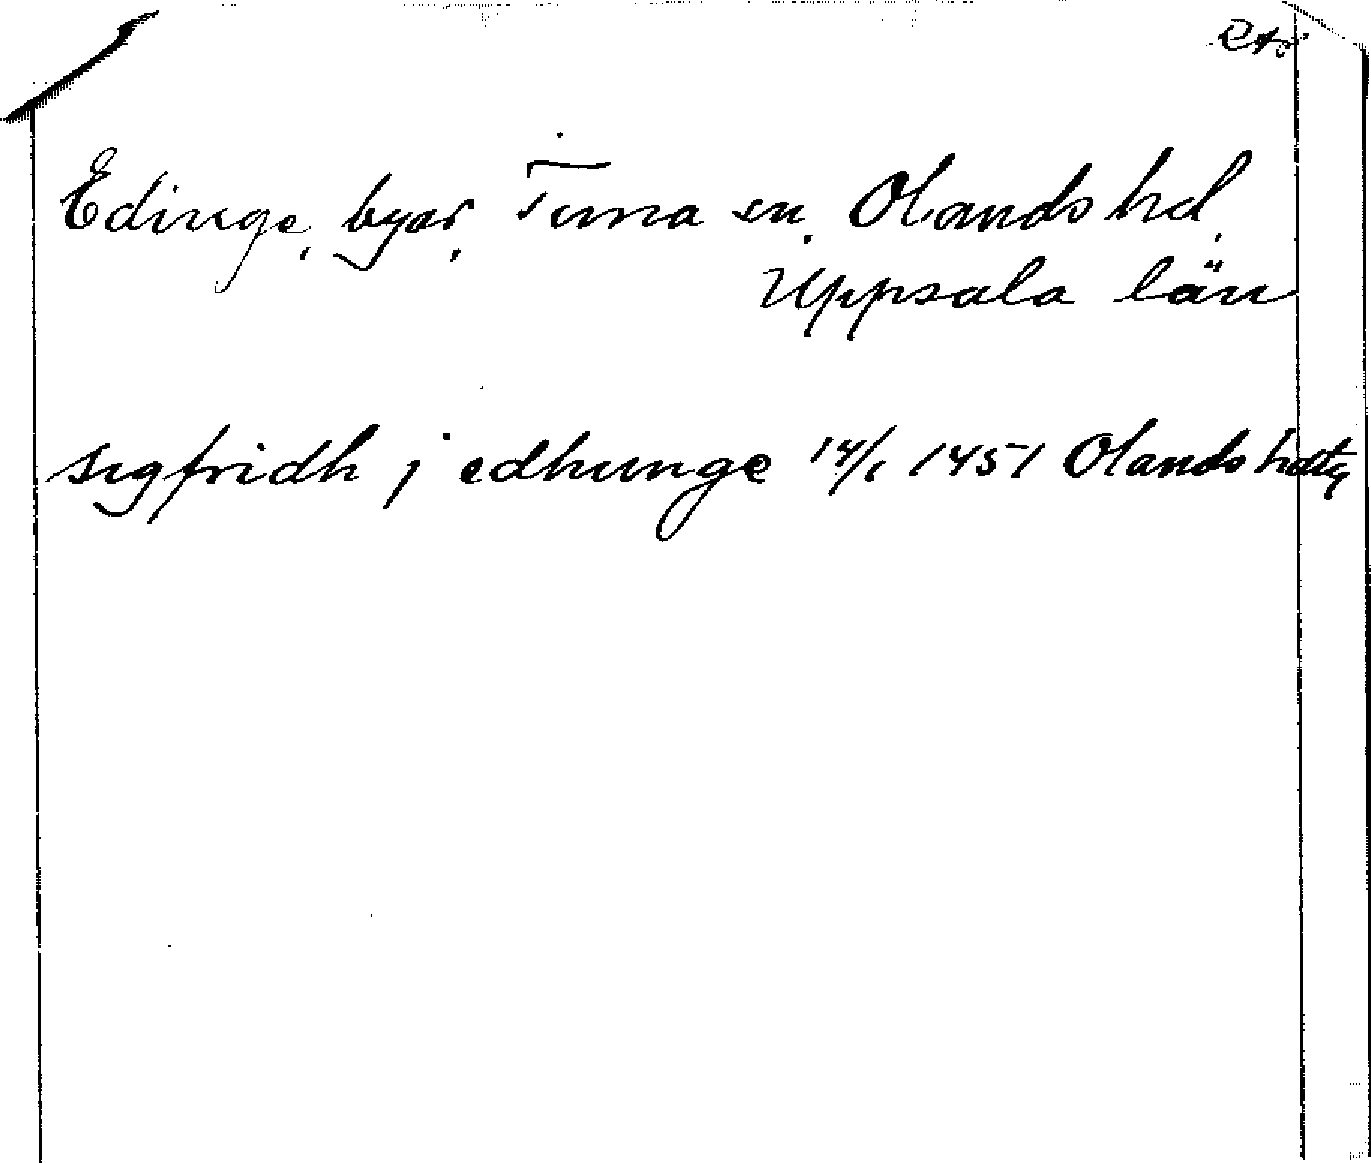 Edinge, byar, Tuna sn. Olands hd,
Uppsala län
sigfridh j edhunge 14/1 1451 Olands hdtg